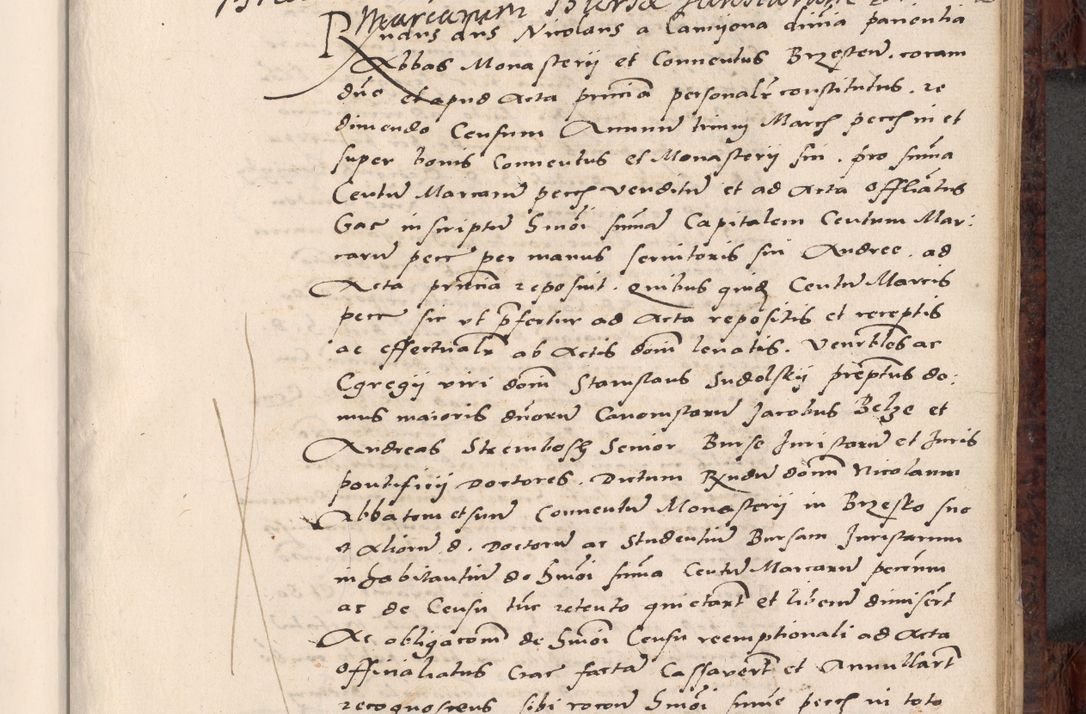 Marcarum Bursæ
Rndus dus Nicolaus a Campona divina patientia
Abbas Monasterij et Conventus Brzesten. coram
dno et apud Acta pnia personalr constitutus. re
dimendo Censum Annuu trium March pecch in et
super bonis Conventus et Monasterij sui. pro suma
Centu Marcaru pecch venditu et ad Acta Offliatus
Crac inscriptu hmoi suma Capitalem Centum Mar:
caru pecc per manus servitoris sui Andree. ad
Acta pntia reposuit. Quibus quid Centu Marcis
pecc sic ut pfertur ad Acta repositis et receptis
ac effectualr ab Actis domi levatis. Venrbles ac
Egregij viri domi Stanislaus Sudolskij preptus do:
mus maioris duoru Canonistaru Jacobus Belze et
Andreas Strembosh Senior Burse Juristaru et Juris
pontificij Doctores. Dictum Rndu domu Nicolaum
Abbatem et suu Conventu Monasterij in Brzesko suo
et Alioru d. Doctoru ac Studentiu Bursam Juristarum
inhabitantiu de hmoi suma Centu Marcaru pecnum
ac de Censu tuc retento quietarut et liberu dimisert
Ac obligacom de hmoi Censu reemptionali ad Acta
Officialiatus Crac facta Cassavert et Annullart
recognoscens sibi hmoi sume pecch in toto